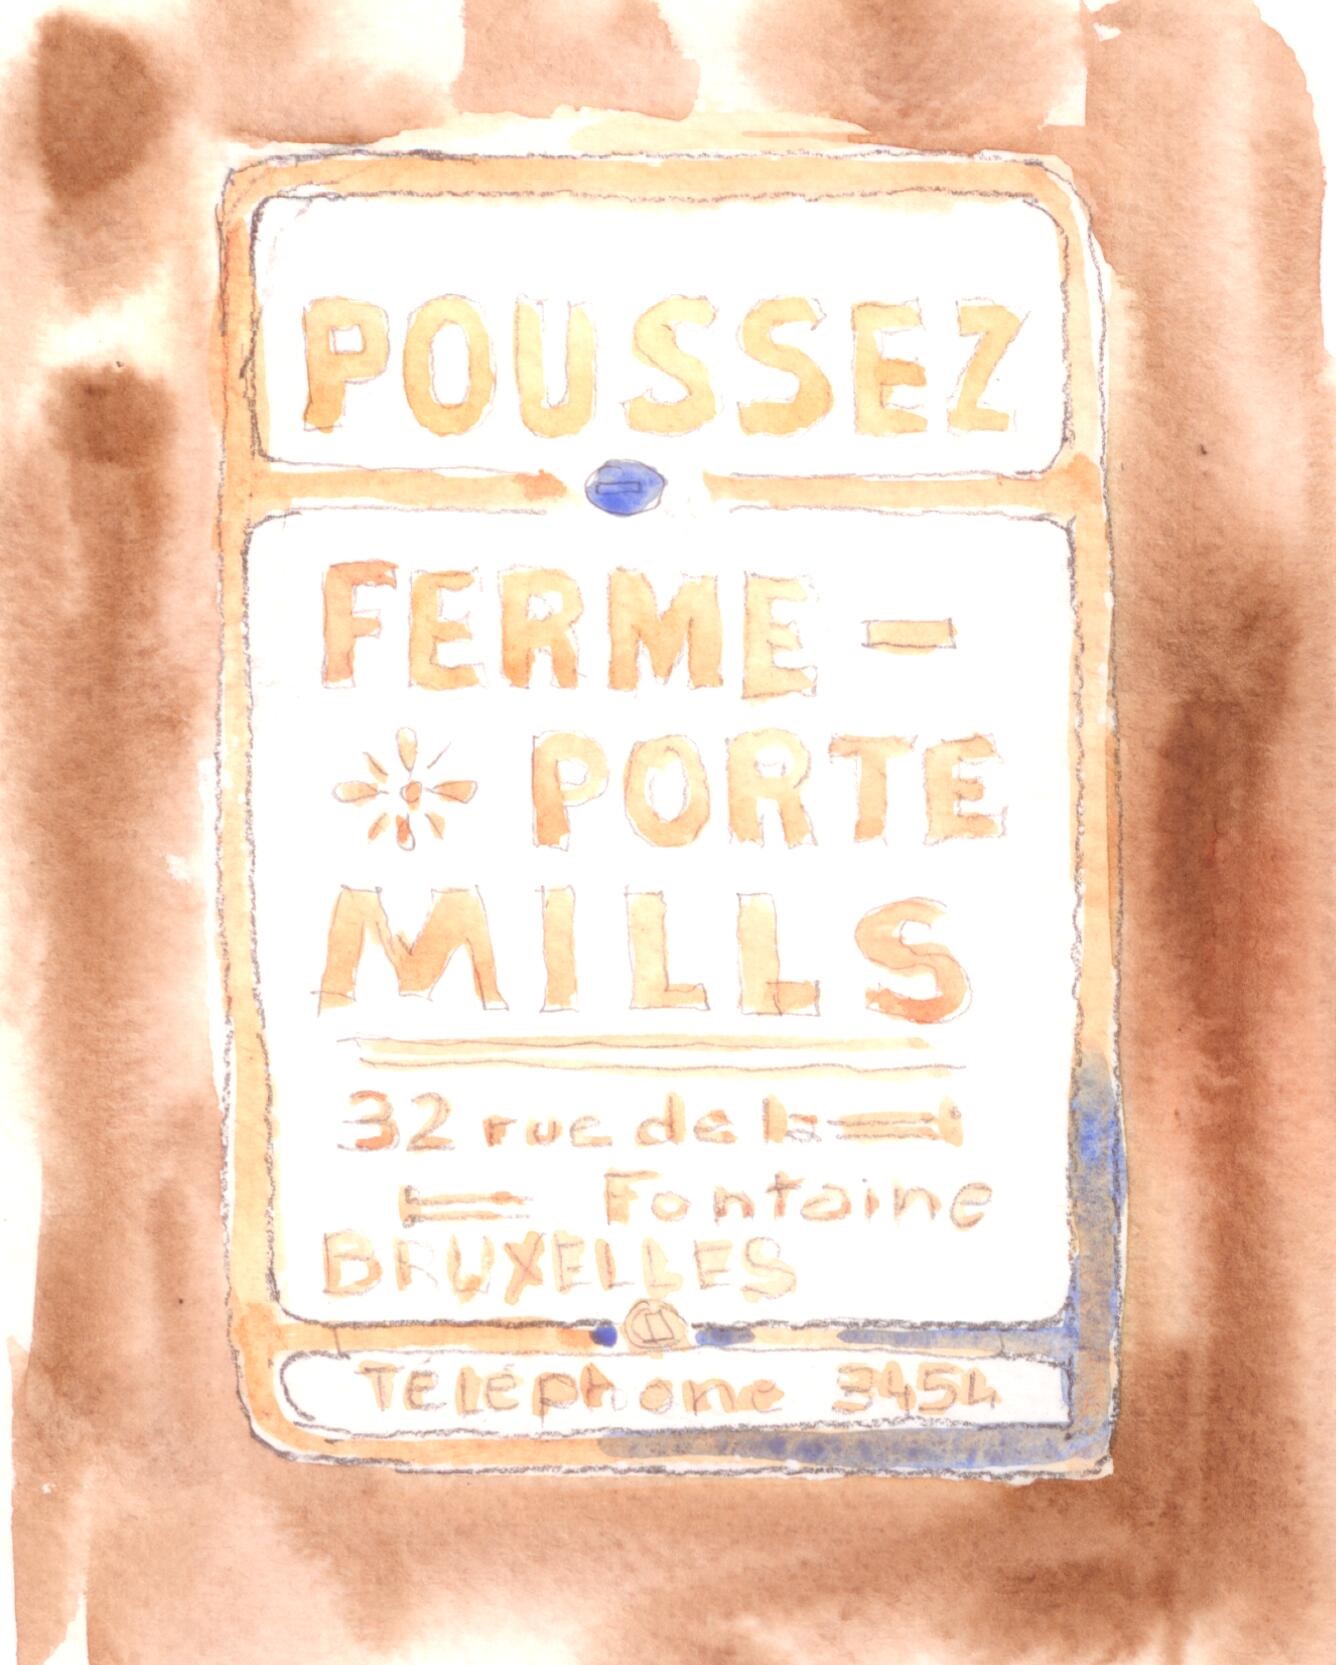 POUSSEZ
FERME-
PORTE
MILLS
32 rue de la
Fontaine
BRUXELLES
TÉLéphone 3454